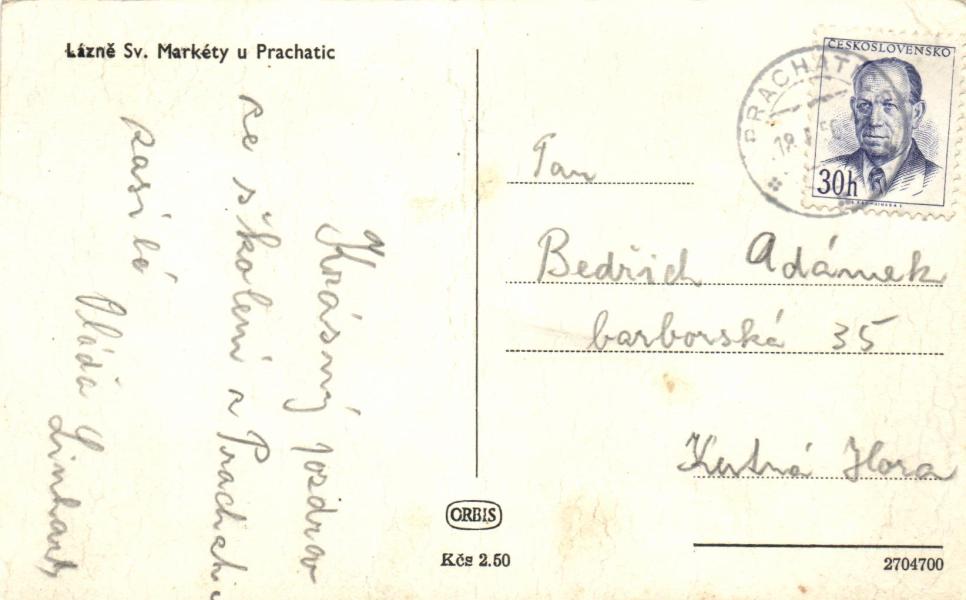 Lázně Sv. Markéty u Prachatic
Krásný pozdrav
ze školení z Prachatic
zasílá
Vláďa Linhart
ČESKOSLOVENSKO
30h
PRACHATICE
Pan
Bedřich Adámek
barborská 35
Kutná Hora
ORBIS
Kčs 2.50
2704700